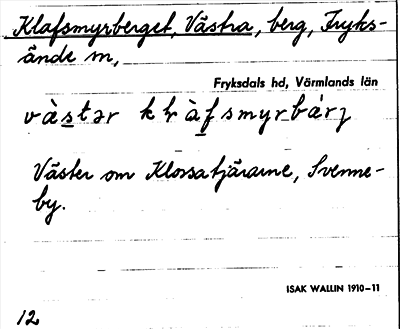 Klafsmyrberget, Västra, berg, Fryks-
ände sn,
Fryksdals hd, Värmlands län
Väster om Klossatjärarne, Svenne-
by.
ISAK WALLIN 1910–11
12